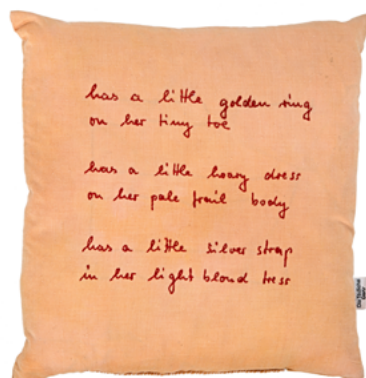 has a little golden ring
on her tiny toe
has a little heavy dress
on her pale frail body
has a little silver strap
in her light blond tress